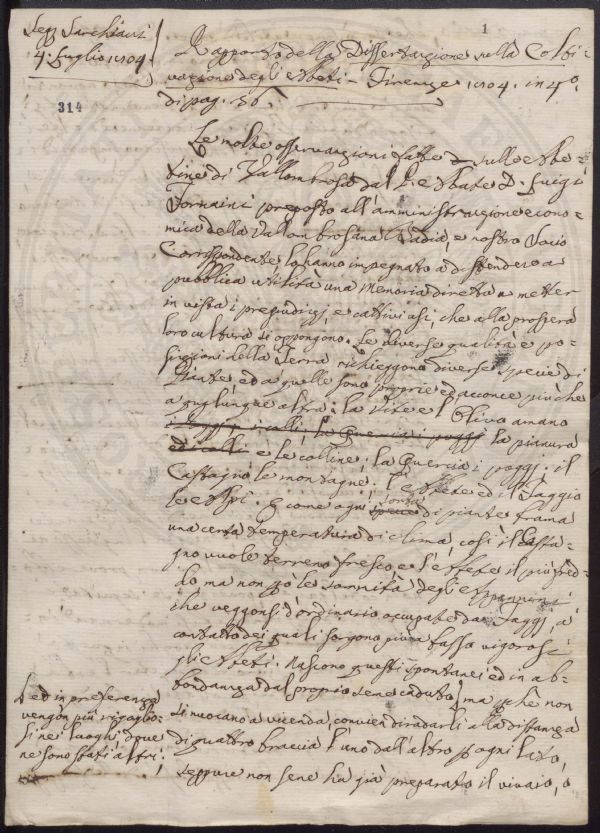 Legg. Sarchiani
4. Luglio 1804.
314
1
Rapporto della Dissertazione sulla Colti-
vazione degli Abeti - Firenze 1804. in 4º.
di pag. 56.
Le molte osservazioni fatte sulle Abe-
tine di Vallombrosa dal P. Abate D. Luigi
Fornaini preposto all'amministrazione econo-
mica della Vallombrosana Badia, e nostro Socio
Corrispondente, lo hanno impegnato a distendere a
pubblica utilità una Memoria diretta a metter
in vista i pregiudizj, e cattivi usi, che alla prospera
loro cultura si oppongono. Le diverse qualità e po-
sizioni della Terra richieggono diverse specie di
Piante, ed a quelle sono proprie ed acconce più che
a qualunque altra: la Vite e l'Olivo amano
la pianura
e le colline; la Quercia i poggi; il
Castagno le montagne; l'Abete ed il Faggio
le Alpi. E come ogni sorta di piante brama
una certa temperatura di clima, così il Casta-
gno vuole terreno fresco, e l'Abete il più fred-
do, ma non già le sommità degli Appennini
che veggonsi d'ordinario occupate da Faggj, a
contatto dei quali sorgono più a bassa vigorosi
gli Abeti. Nascono questi spontanei ed in ab-
bondanza dal proprio seme caduto; ma perchè non
si nuocano a vicenda, convien diradarli alla distanza
di quattro braccia l'uno dall'altro per ogni lato,
seppure non se ne ha già preparato il vivaio, o
ed in preferenza
vengon più rigoglio-
si nei luoghi dove
ne sono stati altri;